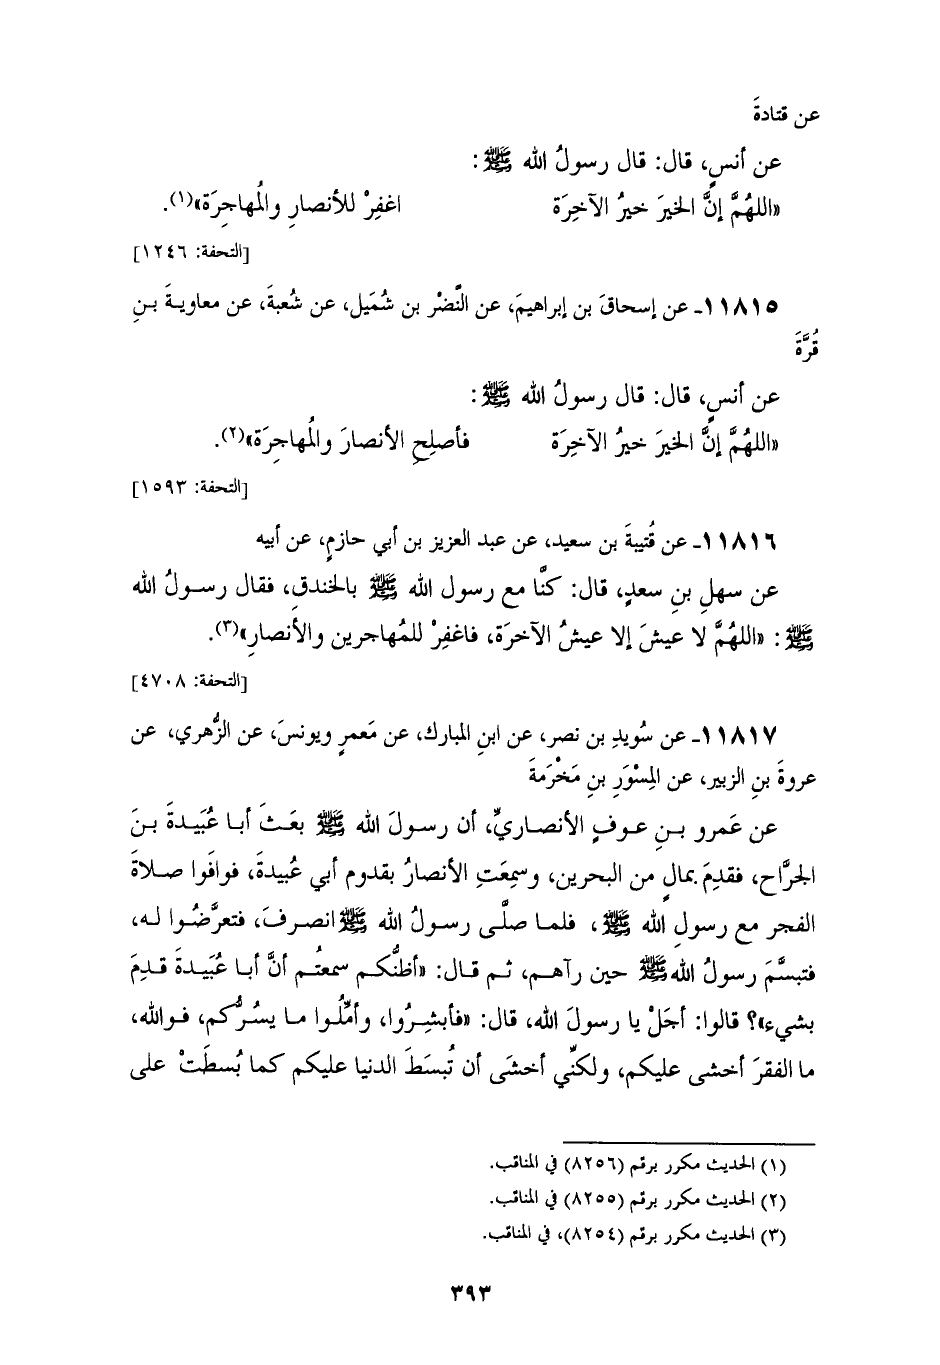 عن قتادةَ
عن أنسٍ، قال: قال رسولُ الله ﷺ:
«اللهُمَّ إنَّ الخيرَ خيرُ الآخِرَة اغفِرْ للأنصارِ والُمهاجِرَة»(١).
[التحفة: ١٢٤٦]
١١٨١٥ـ عن إسحاقَ بن إبراهيمَ، عن النَّضْر بن شُمَيل، عن شُعبةَ، عن معاويةَ بنِ
قُرَّةَ
عن أنسٍ، قال: قال رسولُ الله ﷺ:
«اللهُمَّ إنَّ الخيرَ خيرُ الآخِرَة فأصلِحِ الأنصارَ والُمهاجِرَة»(٢).
[التحفة: ١٥٩٣]
١١٨١٦ـ عن قُتيبةَ بن سعيد، عن عبد العزيز بن أبي حازمٍ، عن أبيه
عن سهلِ بنِ سعدٍ، قال: كنَّا مع رسول الله ﷺ بالخندقِ، فقال رسولُ الله
ﷺ: «اللهُمَّ لا عيشَ إلا عيشُ الآخرَة، فاغفِرْ للمُهاجرين والأنصارِ»(٣).
[التحفة: ٤٧٠٨]
١١٨١٧ـ عن سُويدِ بن نصر، عن ابنِ المبارك، عن مَعمرٍ ويونسَ، عن الزُّهري، عن
عروةَ بنِ الزبير، عن المِسْوَرِ بنِ مَخْرَمةَ
عن عَمرو بنِ عوفٍ الأنصاريِّ، أن رسولَ الله ﷺ بعَثَ أبا عُبَيدةَ بنَ
الجرَّاح، فقدِمَ بمالٍ من البحرين، وسمِعَتِ الأنصارُ بقدوم أبي عُبيدةَ، فوافَوا صلاةَ
الفجر مع رسولِ الله ﷺ، فلما صلَّى رسولُ الله ﷺ انصرفَ، فتعرَّضُوا له،
فتبسَّمَ رسولُ الله ﷺ حين رآهم، ثم قال: «أظنُّكم سمعتُم أنَّ أبا عُبَيدةَ قدِمَ
بشيء»؟ قالوا: أجَلْ يا رسولَ الله، قال: «فأبشِرُوا، وأمِّلُوا ما يسُرُّكم، فوالله،
ما الفقرَ أخشى عليكم، ولكنِّي أخشَى أن تُبسَطَ الدنيا عليكم كما بُسطَتْ على
(١) الحديث مكرر برقم (٨٢٥٦) في المناقب.
(٢) الحديث مكرر برقم (٨٢٥٥) في المناقب.
(٣) الحديث مكرر برقم (٨٢٥٤)، في المناقب.
٣٩٣